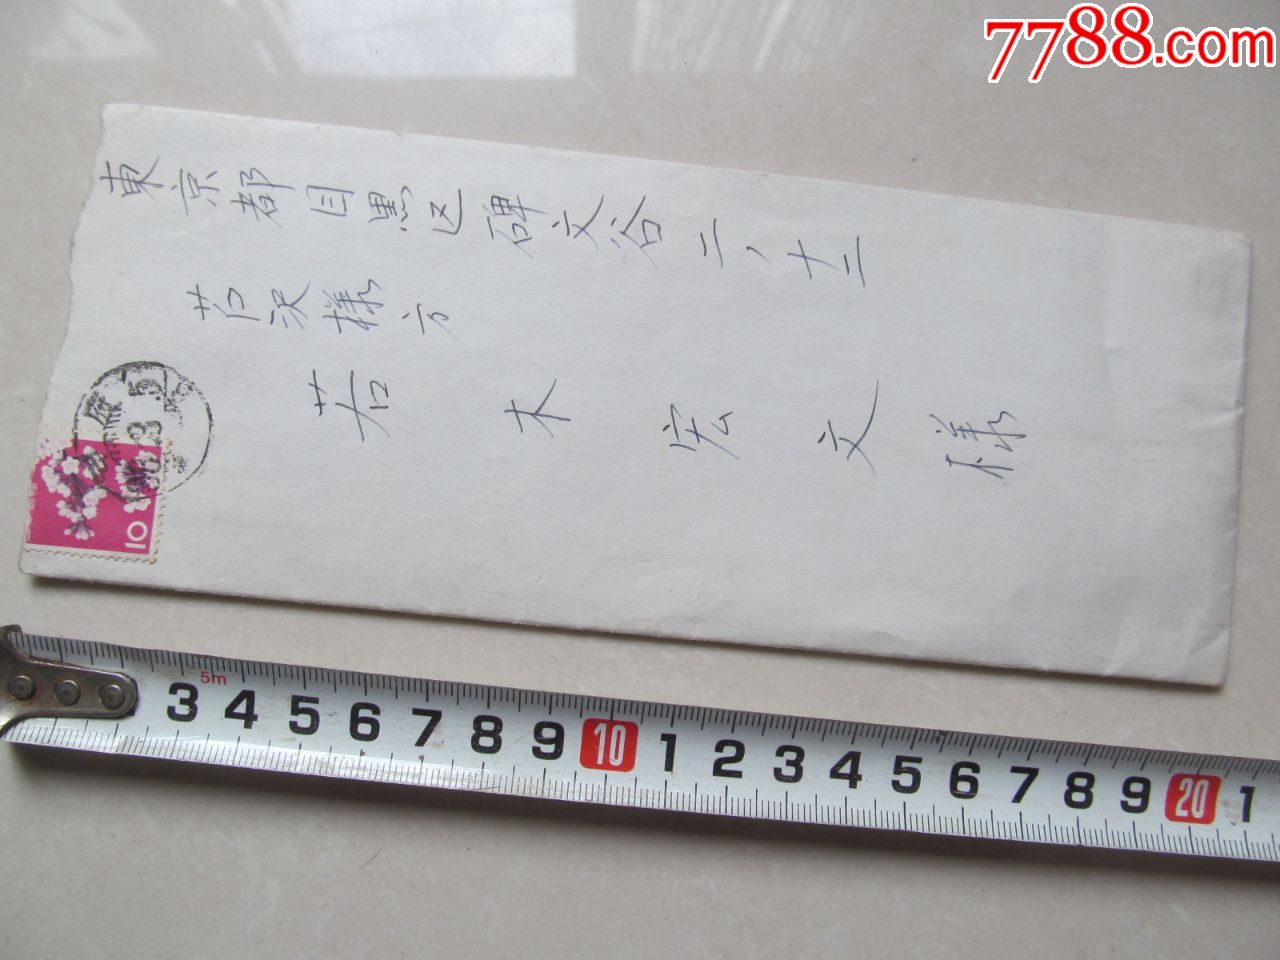 7788.com
東京都目黒区碑文谷二ノ十三
若沢様方
若木宏文様
36.3.5
10
5m
3 4 5 6 7 8 9 10 1 2 3 4 5 6 7 8 9 20 1